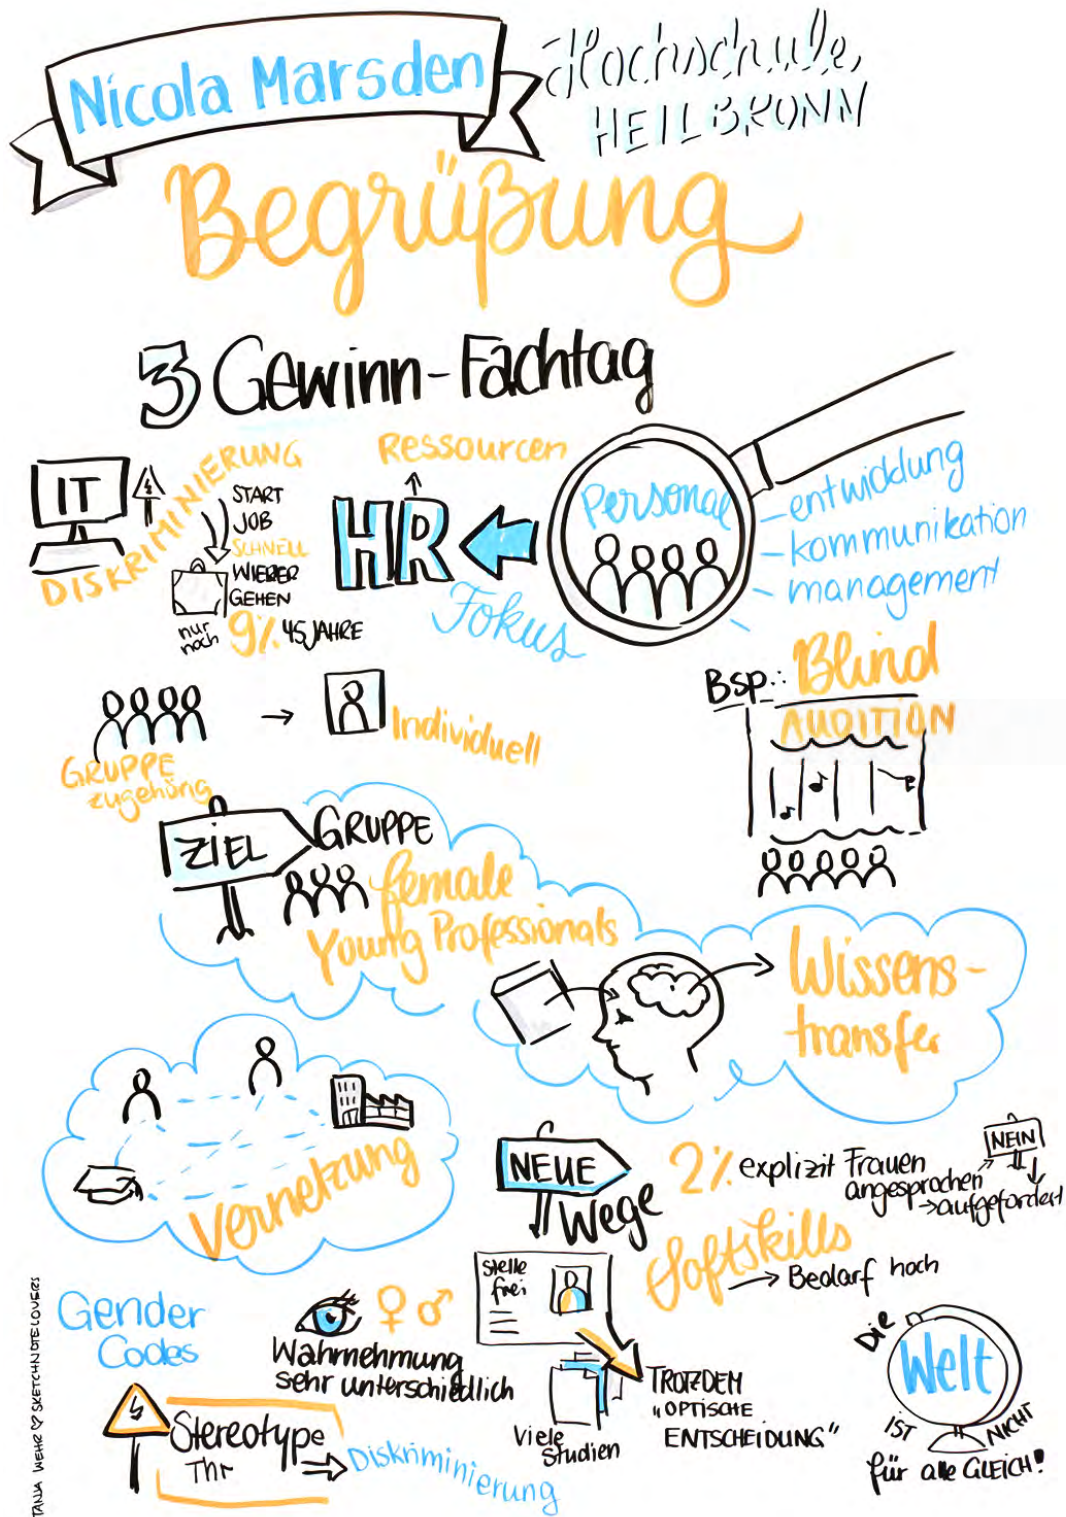 Nicola Marsden
Hochschule
HEILBRONN
Begrüßung
3 Gewinn-Fachtag
IT
DISKRIMINIERUNG
START
JOB
SCHNELL
WIEDER
GEHEN
nur
noch
9% 45 JAHRE
Ressourcen
HR
Fokus
Personal
- entwicklung
- kommunikation
- management
Bsp.: Blind
AUDITION
GRUPPE
zugehörig
Individuell
ZIEL
GRUPPE
female
Young Professionals
Wissens-
transfer
Vernetzung
NEUE
Wege
2% explizit Frauen
angesprochen
→ aufgefordert
NEIN
Softskills
→ Bedarf hoch
Stelle
frei
Gender
Codes
Wahrnehmung
sehr unterschiedlich
Viele
Studien
TROTZDEM
"OPTISCHE
ENTSCHEIDUNG"
Stereotype
Thr
Diskriminierung
Die
Welt
IST NICHT
für alle GLEICH!
TANJA WEHR ♡ SKETCHNOTELOVERS